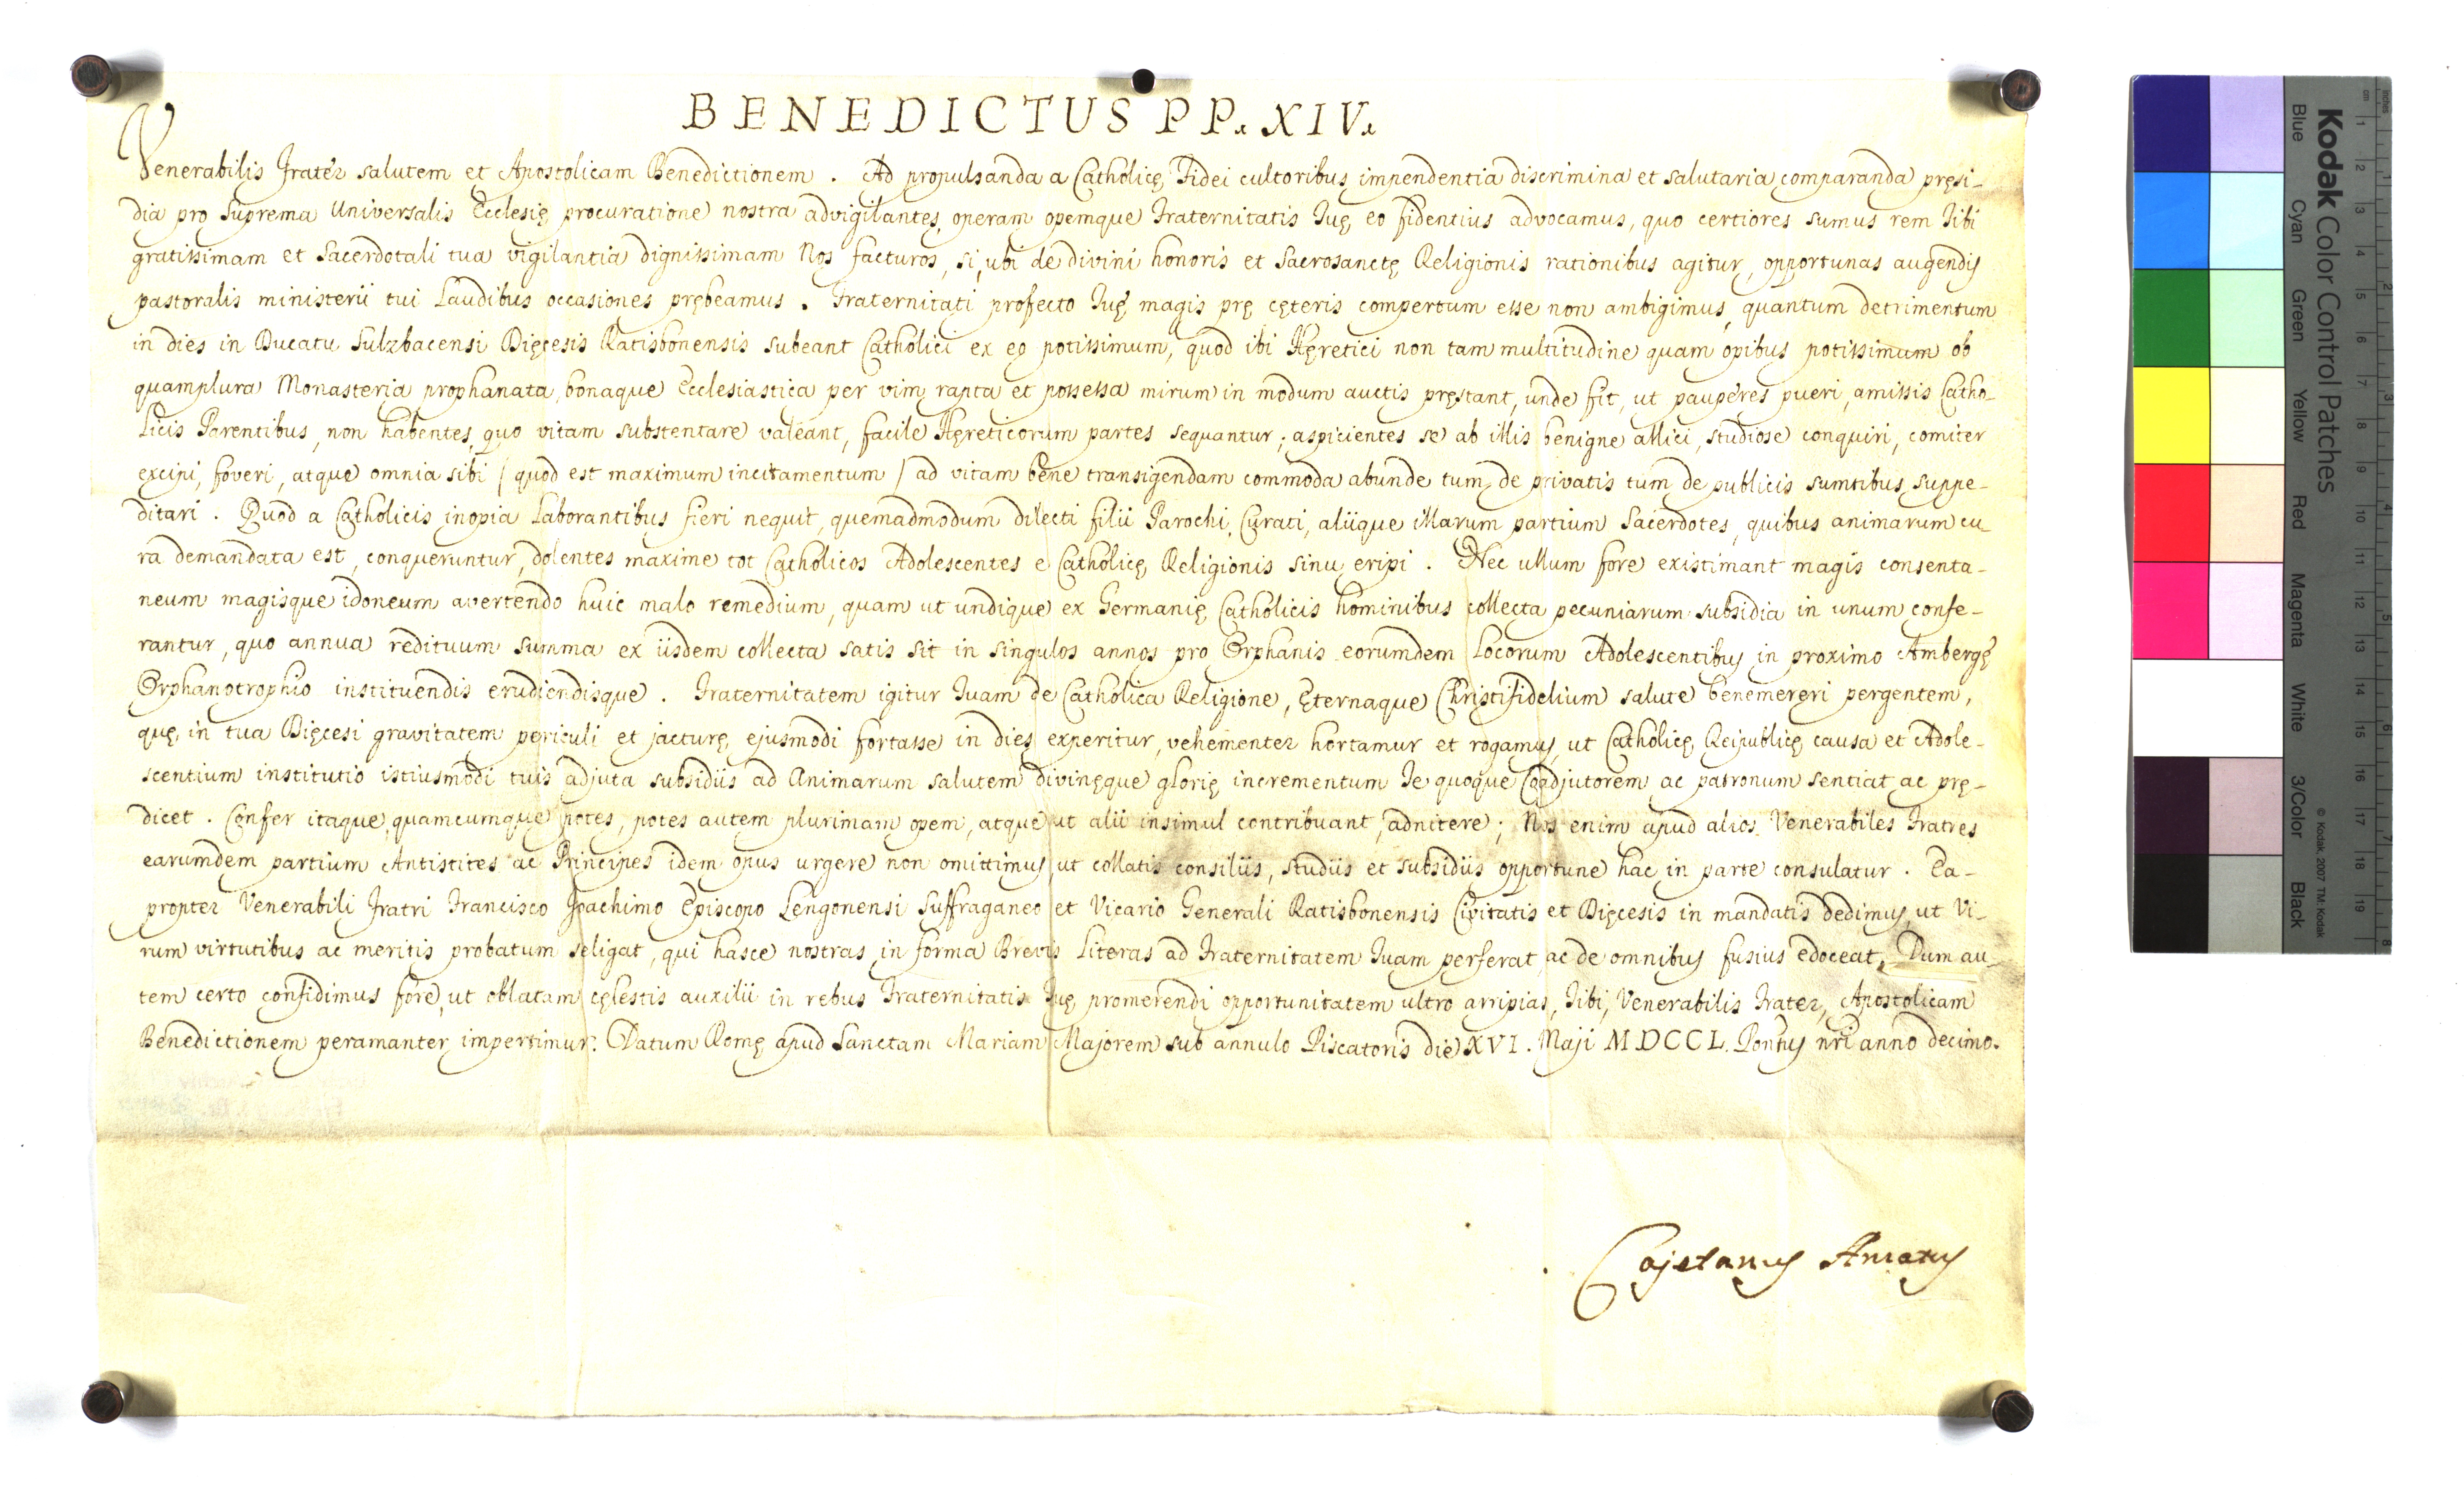 BENEDICTUS PP. XIV.
Venerabilis Frater salutem et Apostolicam Benedictionem . Ad propulsanda a Catholicę Fidei cultoribus impendentia discrimina et salutaria comparanda pręsi-
dia pro suprema Universalis Ecclesię procuratione nostra advigilantes, operam opemque Fraternitatis Tuę eo fidentius advocamus, quo certiores sumus rem Tibi
gratissimam et Sacerdotali tua vigilantia dignissimam Nos facturos, si, ubi de divini honoris et Sacrosanctę Religionis rationibus agitur, opportunas augendis
pastoralis ministerii tui Laudibus occasiones prębeamus . Fraternitati profecto Tuę magis prę cęteris compertum esse non ambigimus, quantum detrimentum
in dies in Ducatu Sulzbacensi Dięcesis Ratisbonensis subeant Catholici ex eo potissimum, quod ibi Hęretici non tam multitudine quam opibus potissimum ob
quamplura Monasteria prophanata, bonaque Ecclesiastica per vim rapta et possessa mirum in modum auctis pręstant, unde fit, ut pauperes pueri, amissis Catho-
licis Parentibus, non habentes, quo vitam substentare valeant, facile Hęreticorum partes sequantur; aspicientes se ab illis benigne allici, studiose conquiri, comiter
excipi, foveri, atque omnia sibi / quod est maximum incitamentum / ad vitam bene transigendam commoda abunde tum de privatis tum de publicis sumtibus suppe-
ditari . Quod a Catholicis inopia Laborantibus fieri nequit, quemadmodum dilecti filii Parochi, Curati, aliique illarum partium Sacerdotes, quibus animarum cu-
ra demandata est, conqueruntur, dolentes maxime tot Catholicos Adolescentes e Catholicę Religionis sinu eripi . Nec ullum fore existimant magis consenta-
neum magisque idoneum avertendo huic malo remedium, quam ut undique ex Germanię Catholicis hominibus collecta pecuniarum subsidia in unum confe-
rantur, quo annua redituum summa ex iisdem collecta satis sit in singulos annos pro Orphanis eorumdem Locorum Adolescentibus in proximo Ambergę
Orphanotrophio instituendis erudiendisque . Fraternitatem igitur Tuam de Catholica Religione, ęternaque Christifidelium salute benemereri pergentem,
quę in tua Dięcesi gravitatem periculi et jacturę ejusmodi fortasse in dies experitur, vehementer hortamur et rogamus, ut Catholicę Reipublicę causa et Adole-
scentium institutio istiusmodi tuis adjuta subsidiis ad Animarum salutem divinęque glorię incrementum Te quoque Coadjutorem ac patronum sentiat ac prę-
dicet . Confer itaque, quamcumque potes, potes autem plurimam opem, atque ut alii insimul contribuant, adnitere; Nos enim apud alios Venerabiles Fratres
earumdem partium Antistites ac Principes idem opus urgere non omittimus, ut collatis consiliis, studiis et subsidiis opportune hac in parte consulatur . Ea-
propter Venerabili Fratri Francisco Joachimo Episcopo Lengonensi Suffraganeo et Vicario Generali Ratisbonensis Civitatis et Dięcesis in mandatis dedimus, ut Vi-
rum virtutibus ac meritis probatum seligat, qui hasce nostras in forma Brevis Literas ad Fraternitatem Tuam perferat, ac de omnibus fusius edoceat. Dum au-
tem certo confidimus fore, ut oblatam cęlestis auxilii in rebus Fraternitatis Tuę promerendi opportunitatem ultro arripias, Tibi, Venerabilis Frater, Apostolicam
Benedictionem peramanter impertimur. Datum Romę apud Sanctam Mariam Majorem sub annulo Piscatoris die XVI. Maji MDCCL. Pontus nri anno decimo.
Cajetanus Amatus
Kodak Color Control Patches
© Kodak, 2007 TM: Kodak
Blue Cyan Green Yellow Red Magenta White 3/Color Black
cm 1 2 3 4 5 6 7 8 9 10 11 12 13 14 15 16 17 18 19
inches 1 2 3 4 5 6 7 8